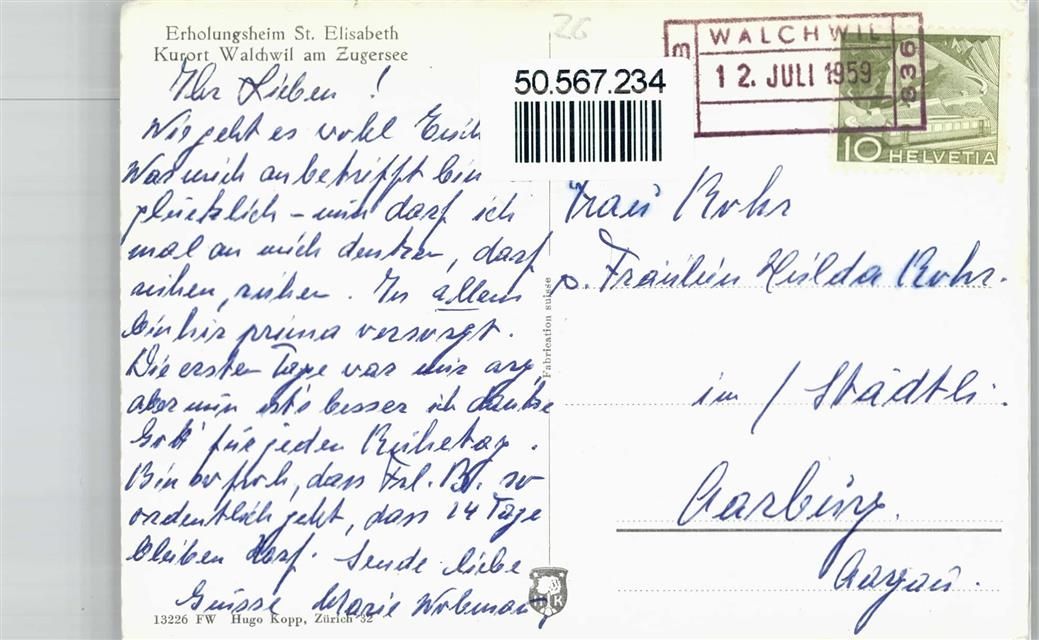 Erholungsheim St. Elisabeth
Kurort Walchwil am Zugersee
Ihr Lieben !
Wie geht es wohl Euch
Was mich anbetrifft bin
glücklich – nun darf ich
mal an mich denken, darf
ruhen, ruhen. In allem
bin hir prima versorgt.
Die ersten Tage war mir arg,
aber nun ists besser ich danke
Gott für jeden Ruhetag.
Bin so froh, dass Frl. B. so
ordentlich geht, dass 14 Tage
bleiben darf. Sende liebe
Grüsse Marie
13226 FW Hugo Kopp, Zürich 32
Fabrication suisse
HK
26
50.567.234
WALCHWIL
12. JULI 1959
836
10 HELVETIA
Frau Rohr
o. Fräulein Hilda Rohr.
im / Städtli.
Aarburg.
Aargau.